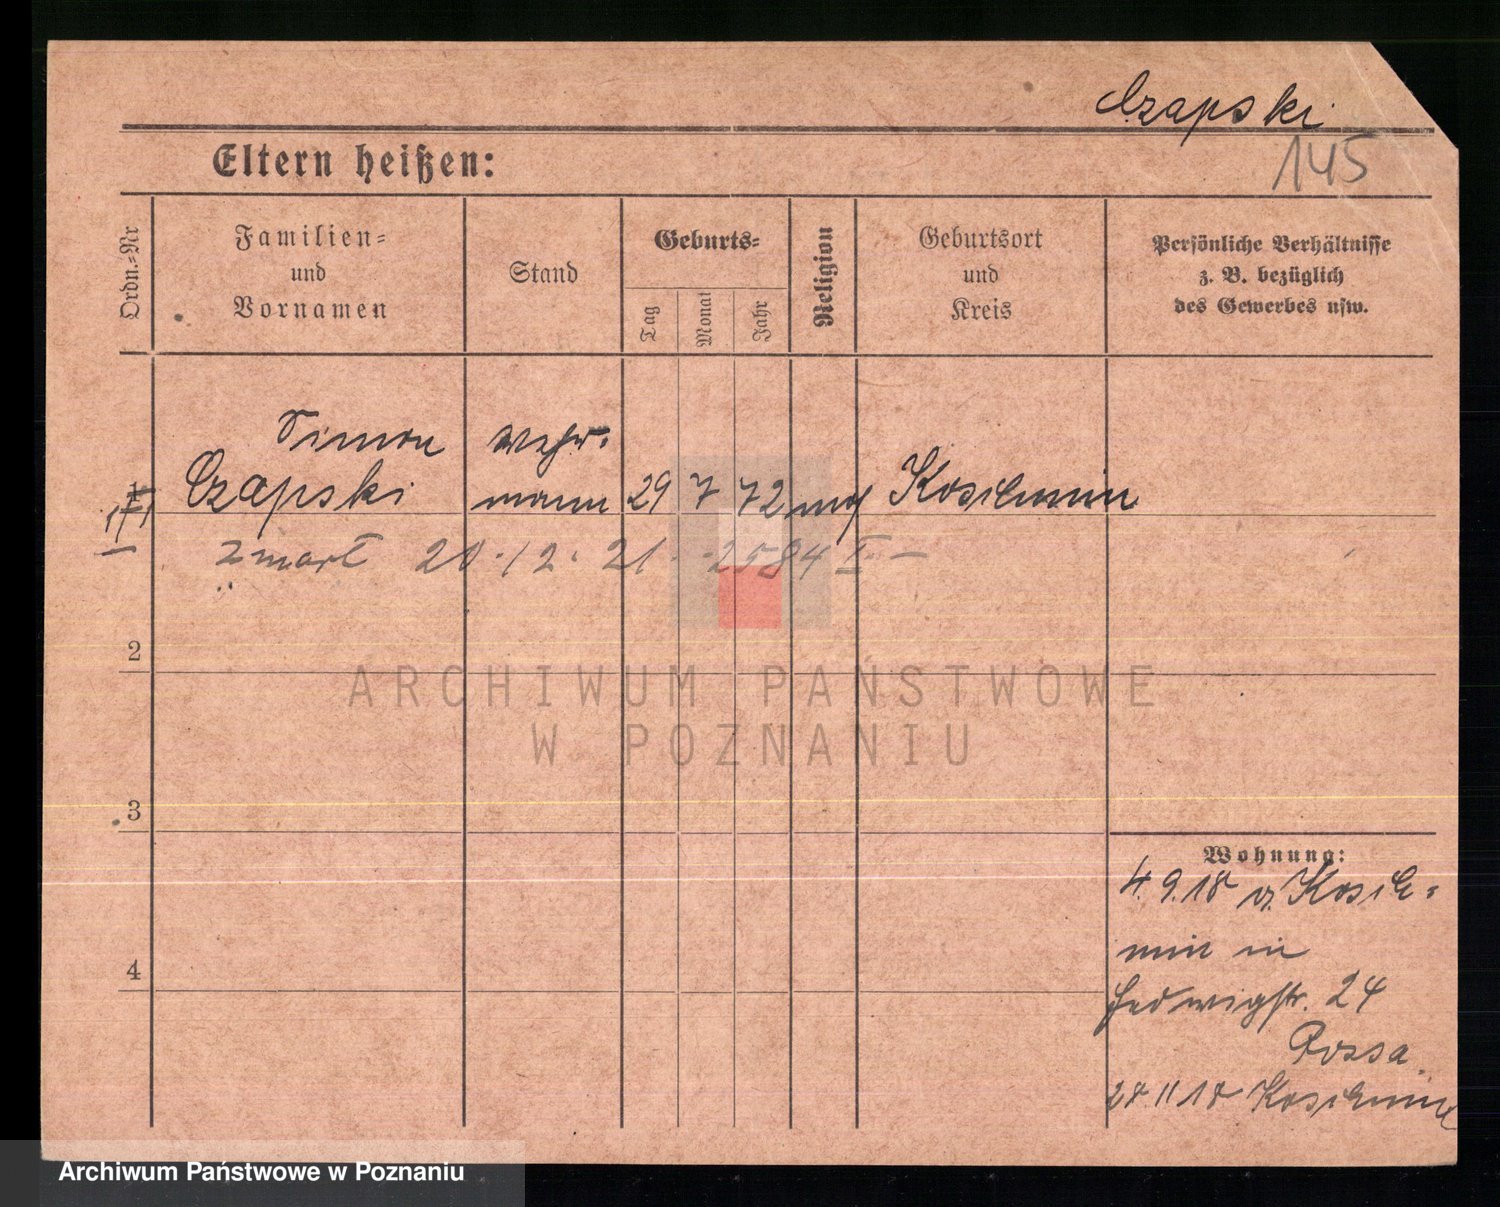 Czapski
145
Eltern heißen:
Ordn.-Nr
Familien-
und
Vornamen
Stand
Geburts-
Tag
Monat
Jahr
Religion
Geburtsort
und
Kreis
Persönliche Verhältnisse
z. B. bezüglich
des Gewerbes usw.
Simon
Wehr-
1 Czapski mann 29 7 72 mos Koschmin
zmarł 20.12.21. 2584 I -
2
ARCHIWUM PAŃSTWOWE
W POZNANIU
3
Wohnung:
4.9.18 v. Kosch-
min in
4
Hedwigstr. 24
Possa
28.11 18 Koschmin
Archiwum Państwowe w Poznaniu